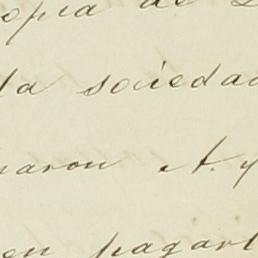 opia de
la sociedad
naron A. y
en pagar